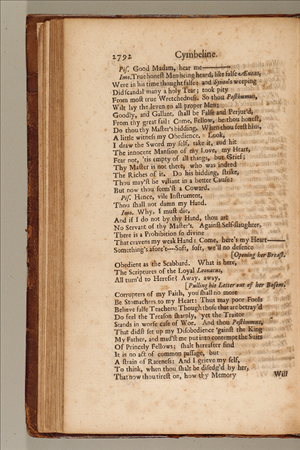 2792 Cymbeline.
Pis. Good Madam, hear me
Imo. True honest Men being heard, like false Æneas,
Were in his time thought false: and Synon's weeping
Did scandal many a holy Tear; took pity
From most true Wretchedness. So thou Posthumus,
Wilt lay the leven to all proper Men;
Goodly, and Gallant, shall be False and Perjur'd,
From thy great fail: Come, Fellow, be thou honest,
Do thou thy Master's bidding. When thou seest him,
A little witness my Obedience. Look,
I draw the Sword my self, take it, and hit
The innocent Mansion of my Love, my Heart,
Fear not, 'tis empty of all things, but Grief;
Thy Master is not there, who was indeed
The Riches of it. Do his bidding, strike,
Thou may'st be valiant in a better Cause;
But now thou seem'st a Coward.
Pis. Hence, vile Instrument,
Thou shalt not damn my Hand.
Imo. Why, I must die,
And if I do not by thy Hand, thou art
No Servant of thy Master's. Against Self-slaughter,
There is a Prohibition so divine
That cravens my weak Hand: Come, here's my Heart
Something's afore't—Soft, soft, we'll no defence
[Opening her Breast.
Obedient as the Scabbard. What is here,
The Scriptures of the Loyal Leonatus,
All turn'd to Heresie? Away, away,
[Pulling his Letter out of her Bosom.
Corrupters of my Faith, you shall no more
Be Stomachers to my Heart: Thus may poor Fools
Believe false Teachers: Though those that are betray'd
Do feel the Treason sharply, yet the Traitor
Stands in worse case of Woe. And thou Posthumus,
That didst set up my Disobedience 'gainst the King
My Father, and mad'st me put into contempt the Suits
Of Princely Fellows; shalt hereafter find
It is no act of common passage, but
A strain of Rareness: And I grieve my self,
To think, when thou shalt be disedg'd by her,
That now thou tirest on, how thy Memory
Will